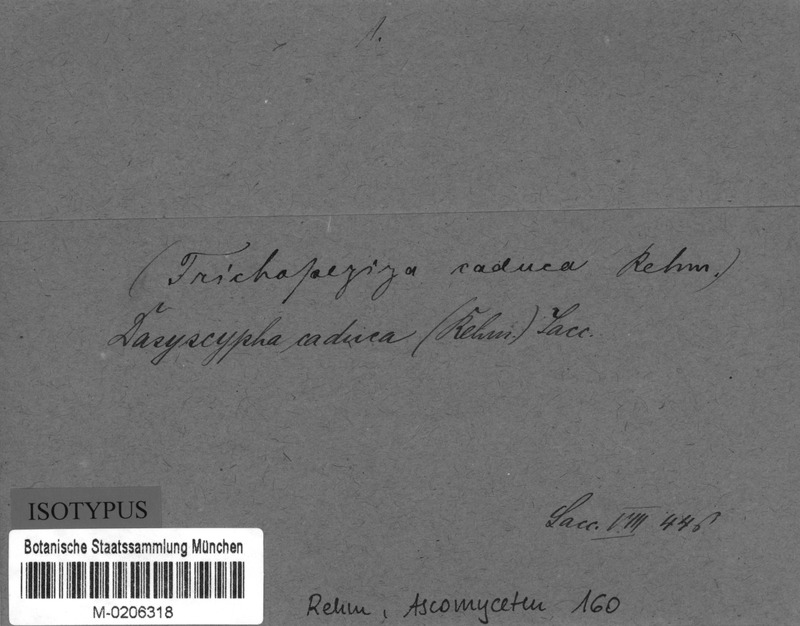 1.
(Trichopeziza caduca Rehm.)
Dasyscypha caduca (Rehm.) Sacc.
Sacc. VIII 446
ISOTYPUS
Botanische Staatssammlung München
M-0206318
Rehm, Ascomyceten 160